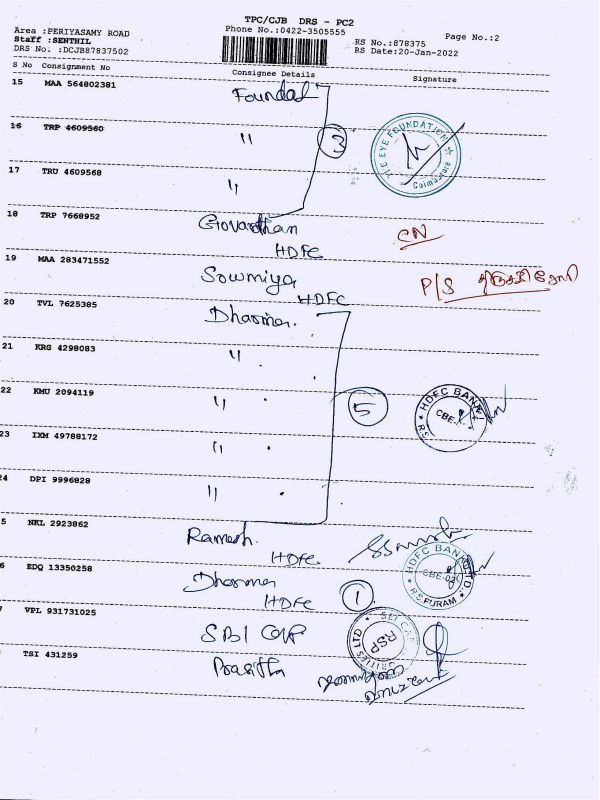 TPC/CJB DRS - PC2
Area :PERIYASAMY ROAD Phone No.:0422-3505555 Page No.:2
Staff :SENTHIL RS No.:878375
DRS No. :DCJB87837502 RS Date:20-Jan-2022
S No Consignment No Consignee Details Signature
15 MAA 564802381 Foundat
16 TRP 4609560 " 3 THE EYE FOUNDATION Coimbatore
17 TRU 4609568 "
18 TRP 7668952 Govardhan HDFC CN
19 MAA 283471552 Sowmiya HDFC P/S
20 TVL 7625385 Dharma
21 KRG 4298083 "
22 KMU 2094119 " 5 HDFC BANK
23 IXM 49788172 "
24 DPI 9996828 "
5 NKL 2923862 Ramesh. HDFC
6 EDQ 13350258 Dharma HDFC 1 HDFC BANK LTD R.S.PURAM
7 VPL 931731025 SBI CAP SBI CAP RSP
TSI 431259 Prasitha